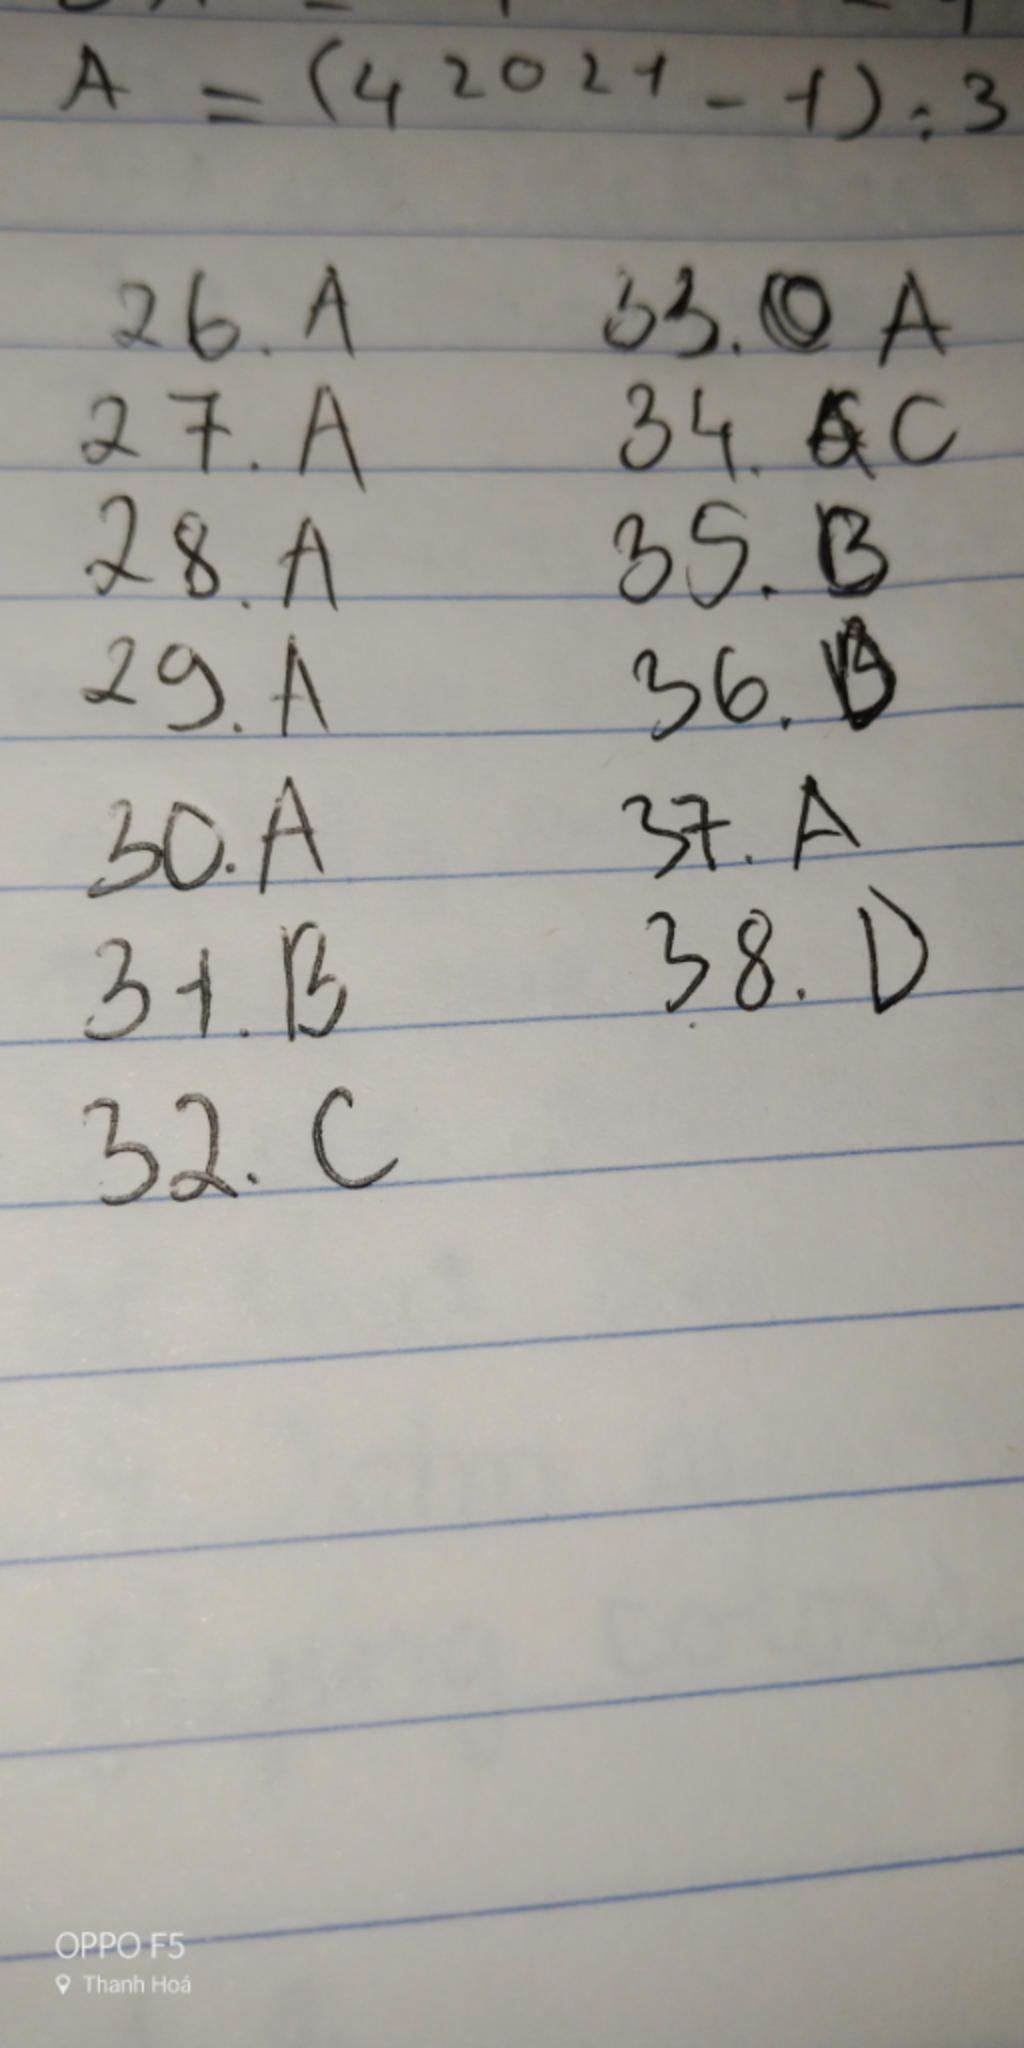 A = (4^2021 - 1) : 3
26. A
27. A
28. A
29. A
30. A
31. B
32. C
33. A
34. C
35. B
36. B
37. A
38. D
OPPO F5
Thanh Hoá